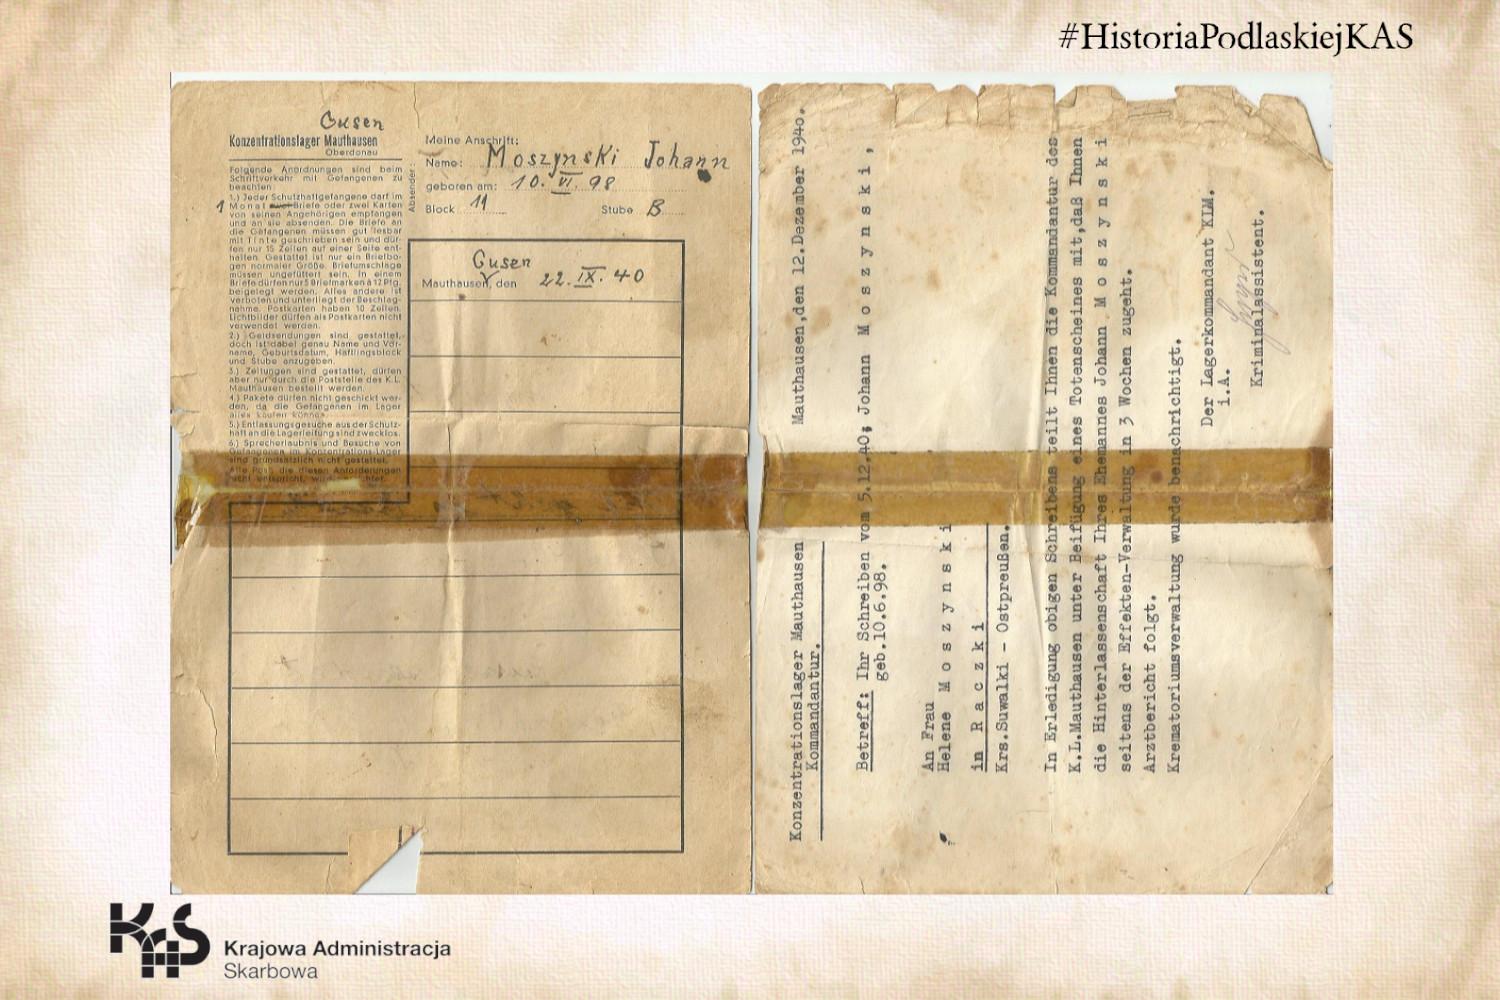 #HistoriaPodlaskiejKAS
Gusen
Konzentrationslager Mauthausen
Oberdonau
Folgende Anordnungen sind beim
Schriftverkehr mit Gefangenen zu
beachten:
1.) Jeder Schutzhaftgefangene darf im
1 Monat Briefe oder zwei Karten
von seinen Angehörigen empfangen
und an sie absenden. Die Briefe an
die Gefangenen müssen gut lesbar
mit Tinte geschrieben sein und dür-
fen nur 15 Zeilen auf einer Seite ent-
halten. Gestattet ist nur ein Briefbo-
gen normaler Größe. Briefumschläge
müssen ungefüttert sein. In einem
Briefe dürfen nur 5 Briefmarken à 12 Pfg.
beigelegt werden. Alles andere ist
verboten und unterliegt der Beschlag-
nahme. Postkarten haben 10 Zeilen.
Lichtbilder dürfen als Postkarten nicht
verwendet werden.
2.) Geldsendungen sind gestattet,
doch ist dabei genau Name und Vor-
name, Geburtsdatum, Häftlingsblock
und Stube anzugeben.
3.) Zeitungen sind gestattet, dürfen
aber nur durch die Poststelle des K.L.
Mauthausen bestellt werden.
4.) Pakete dürfen nicht geschickt wer-
den, da die Gefangenen im Lager
alles kaufen können.
5.) Entlassungsgesuche aus der Schutz-
haft an die Lagerleitung sind zwecklos.
6.) Sprecherlaubnis und Besuche von
Gefangenen im Konzentrations-Lager
sind grundsätzlich nicht gestattet.
Alle Post, die diesen Anforderungen
nicht entspricht, wird
Absender:
Meine Anschrift:
Name: Moszynski Johann
geboren am: 10. VI. 98
Block 11 Stube B
Gusen
Mauthausen, den 22. IX. 40
Konzentrationslager Mauthausen Mauthausen, den 12. Dezember 1940.
Kommandantur.
Betreff: Ihr Schreiben vom 5.12.40; Johann M o s z y n s k i ,
geb. 10.6.98.
An Frau
Helene M o s z y n s k i
in R a c z k i
Krs. Suwalki - Ostpreußen.
In Erledigung obigen Schreibens teilt Ihnen die Kommandantur des
K.L.Mauthausen unter Beifügung eines Totenscheines mit, daß Ihnen
die Hinterlassenschaft Ihres Ehemannes Johann M o s z y n s k i
seitens der Effekten-Verwaltung in 3 Wochen zugeht.
Arztbericht folgt.
Krematoriumsverwaltung wurde benachrichtigt.
Der Lagerkommandant KLM.
i.A.
Kriminalassistent.
KAS
Krajowa Administracja
Skarbowa